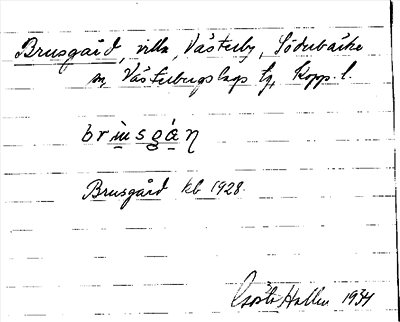 Brusgård, villa, Västerby, Söderbärke
sn, Västerbergslags tg, Kopp. l.
brusgån
Brusgård kb 1928.
Gösta Hallen 1934